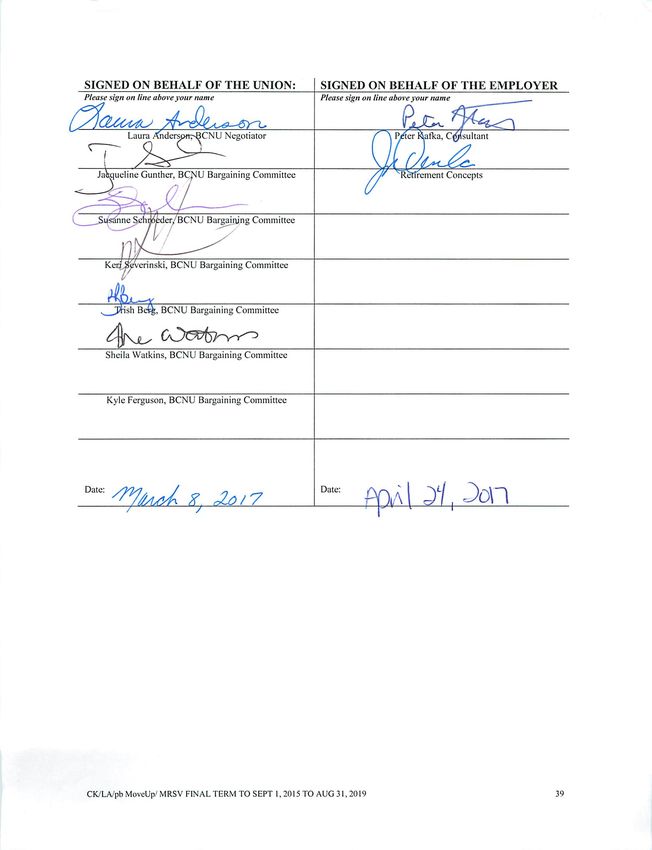 SIGNED ON BEHALF OF THE UNION:
Please sign on line above your name
Laura Anderson
Laura Anderson, BCNU Negotiator
Jacqueline Gunther, BCNU Bargaining Committee
Susanne Schroeder, BCNU Bargaining Committee
Keri Severinski, BCNU Bargaining Committee
Trish Berg, BCNU Bargaining Committee
Sheila Watkins, BCNU Bargaining Committee
Kyle Ferguson, BCNU Bargaining Committee
Date: March 8, 2017
SIGNED ON BEHALF OF THE EMPLOYER
Please sign on line above your name
Peter
Peter Kafka, Consultant
Retirement Concepts
Date: April 24, 2017
CK/LA/pb MoveUp/ MRSV FINAL TERM TO SEPT 1, 2015 TO AUG 31, 2019
39